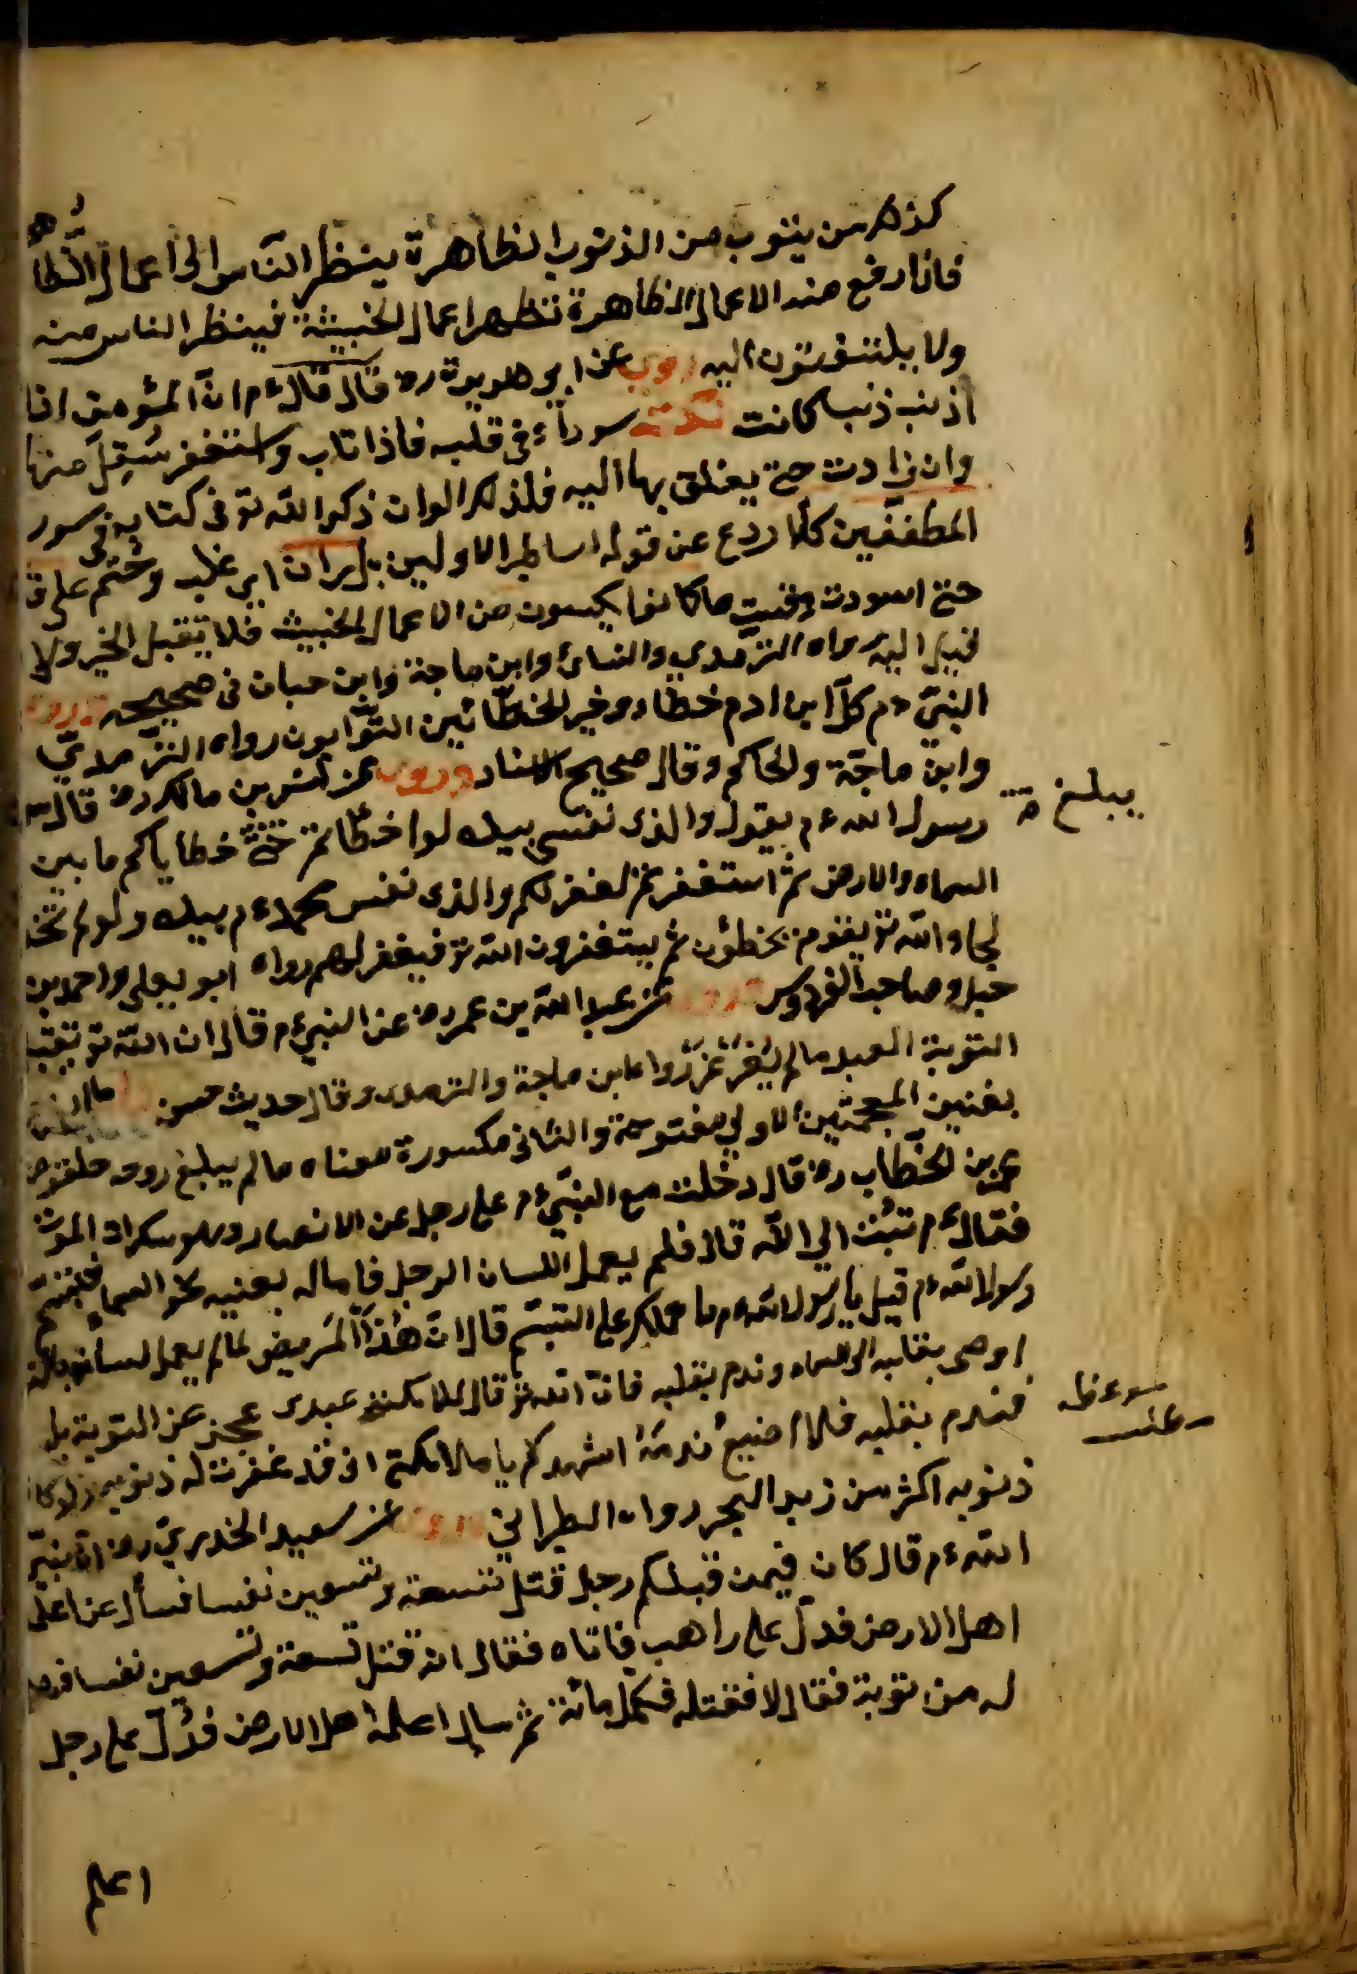 كذلك من يتوب من الذنوب الظاهرة ينظر الناس الى اعمال الظاهر
فاذا رفع عند الاعمال الظاهرة تظهر اعمال الخبيثة فينظر الناس منه
ولا يلتفتون اليه روى عن ابى هريرة رض قال قال ءم ان المؤمن اذا
اذنب ذنبا كانت نكتة سوداء فى قلبه فاذا تاب واستغفر صقل منها
وان زادت حتى يغلق بها اليه فلذلك الران ذكر الله تع فى كتابه فى سور
المطففين كلا ردع عن قوله اساطير الاولين بل ران اى غلب وختم على ق
حتى اسودت وقست ما كانوا يكسبون من الاعمال الخبيثة فلا تقبل الخير ولا
اليه رواه الترمذي والنسائ وابن ماجة وابن حبان فى صحيحه وروى
النبى ءم كل ابن ادم خطاء وخير الخطائين التوابون رواه الترمذي
وابن ماجة والحاكم وقال صحيح الاسناد وروى عن انس بن مالك رض قال
رسول الله ءم يقول والذى نفسى بيده لو اخطائتم حتى خطاياكم ما بين
السماء والارض ثم استغفرتم لغفر لكم والذى نفس محمد ءم بيده ولو لم تخط
لجاء الله تع بقوم يخطؤن ثم يستغفرون الله تع فيغفر لهم رواه ابو يعلى واحمد بن
حبل وصاحب الفردوس وروى عن عبد الله بن عمر رض عن النبي ءم قال ان الله تع يقبل
التوبة العبد مالم يغرغر رواه ابن ماجة والترمدى وقال حديث حسن
بغنين المعجمتين الاولى مفتوحة والثانى مكسورة معناه مالم يبلغ روحه حلقوم
بن الخطاب رض قال دخلت مع النبى ءم على رجل من الانصار وهو سكرات الموت
فقال ءم تبت الى الله قال فلم يعمل اللسان الرجل فامال بعنيه نحو السماء فتبسم
رسول الله ءم قيل يا رسول الله ءم ما حملك على التبسم قال ان هذا المريض لما لم يعمل لسانه بالتوبة
اوصى بقلبه الى السماء وندم بقلبه فان الله تع قال لملائكته عبدى عجز عن التوبة بل
فندم بقلبه فلا اضيع ندمه اشهدكم يا ملائكتى انى قد غفرت له ذنوبه ولو كان
ذنوبه اكثر من زبد البحر رواه الطبراني وروى عن سعيد الخدري رض ان نبى
الله ءم قال كان فيمن قبلكم رجل قتل تسعة وتسعين نفسا فسأل عن اعلى
اهل الارض فدل على راهب فاتاه فقال انه قتل تسعة وتسعين نفسا فهل
له من توبة فقال لا فقتله فكمل مائة ثم سال اعلم اهل الارض فدل على رجل
اعلم
يبلغ
موعظه